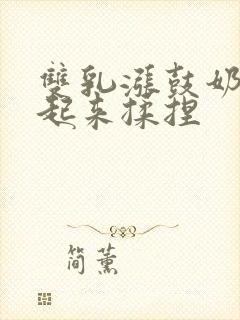 雙乳漲鼓奶
起來揉捏
简薰